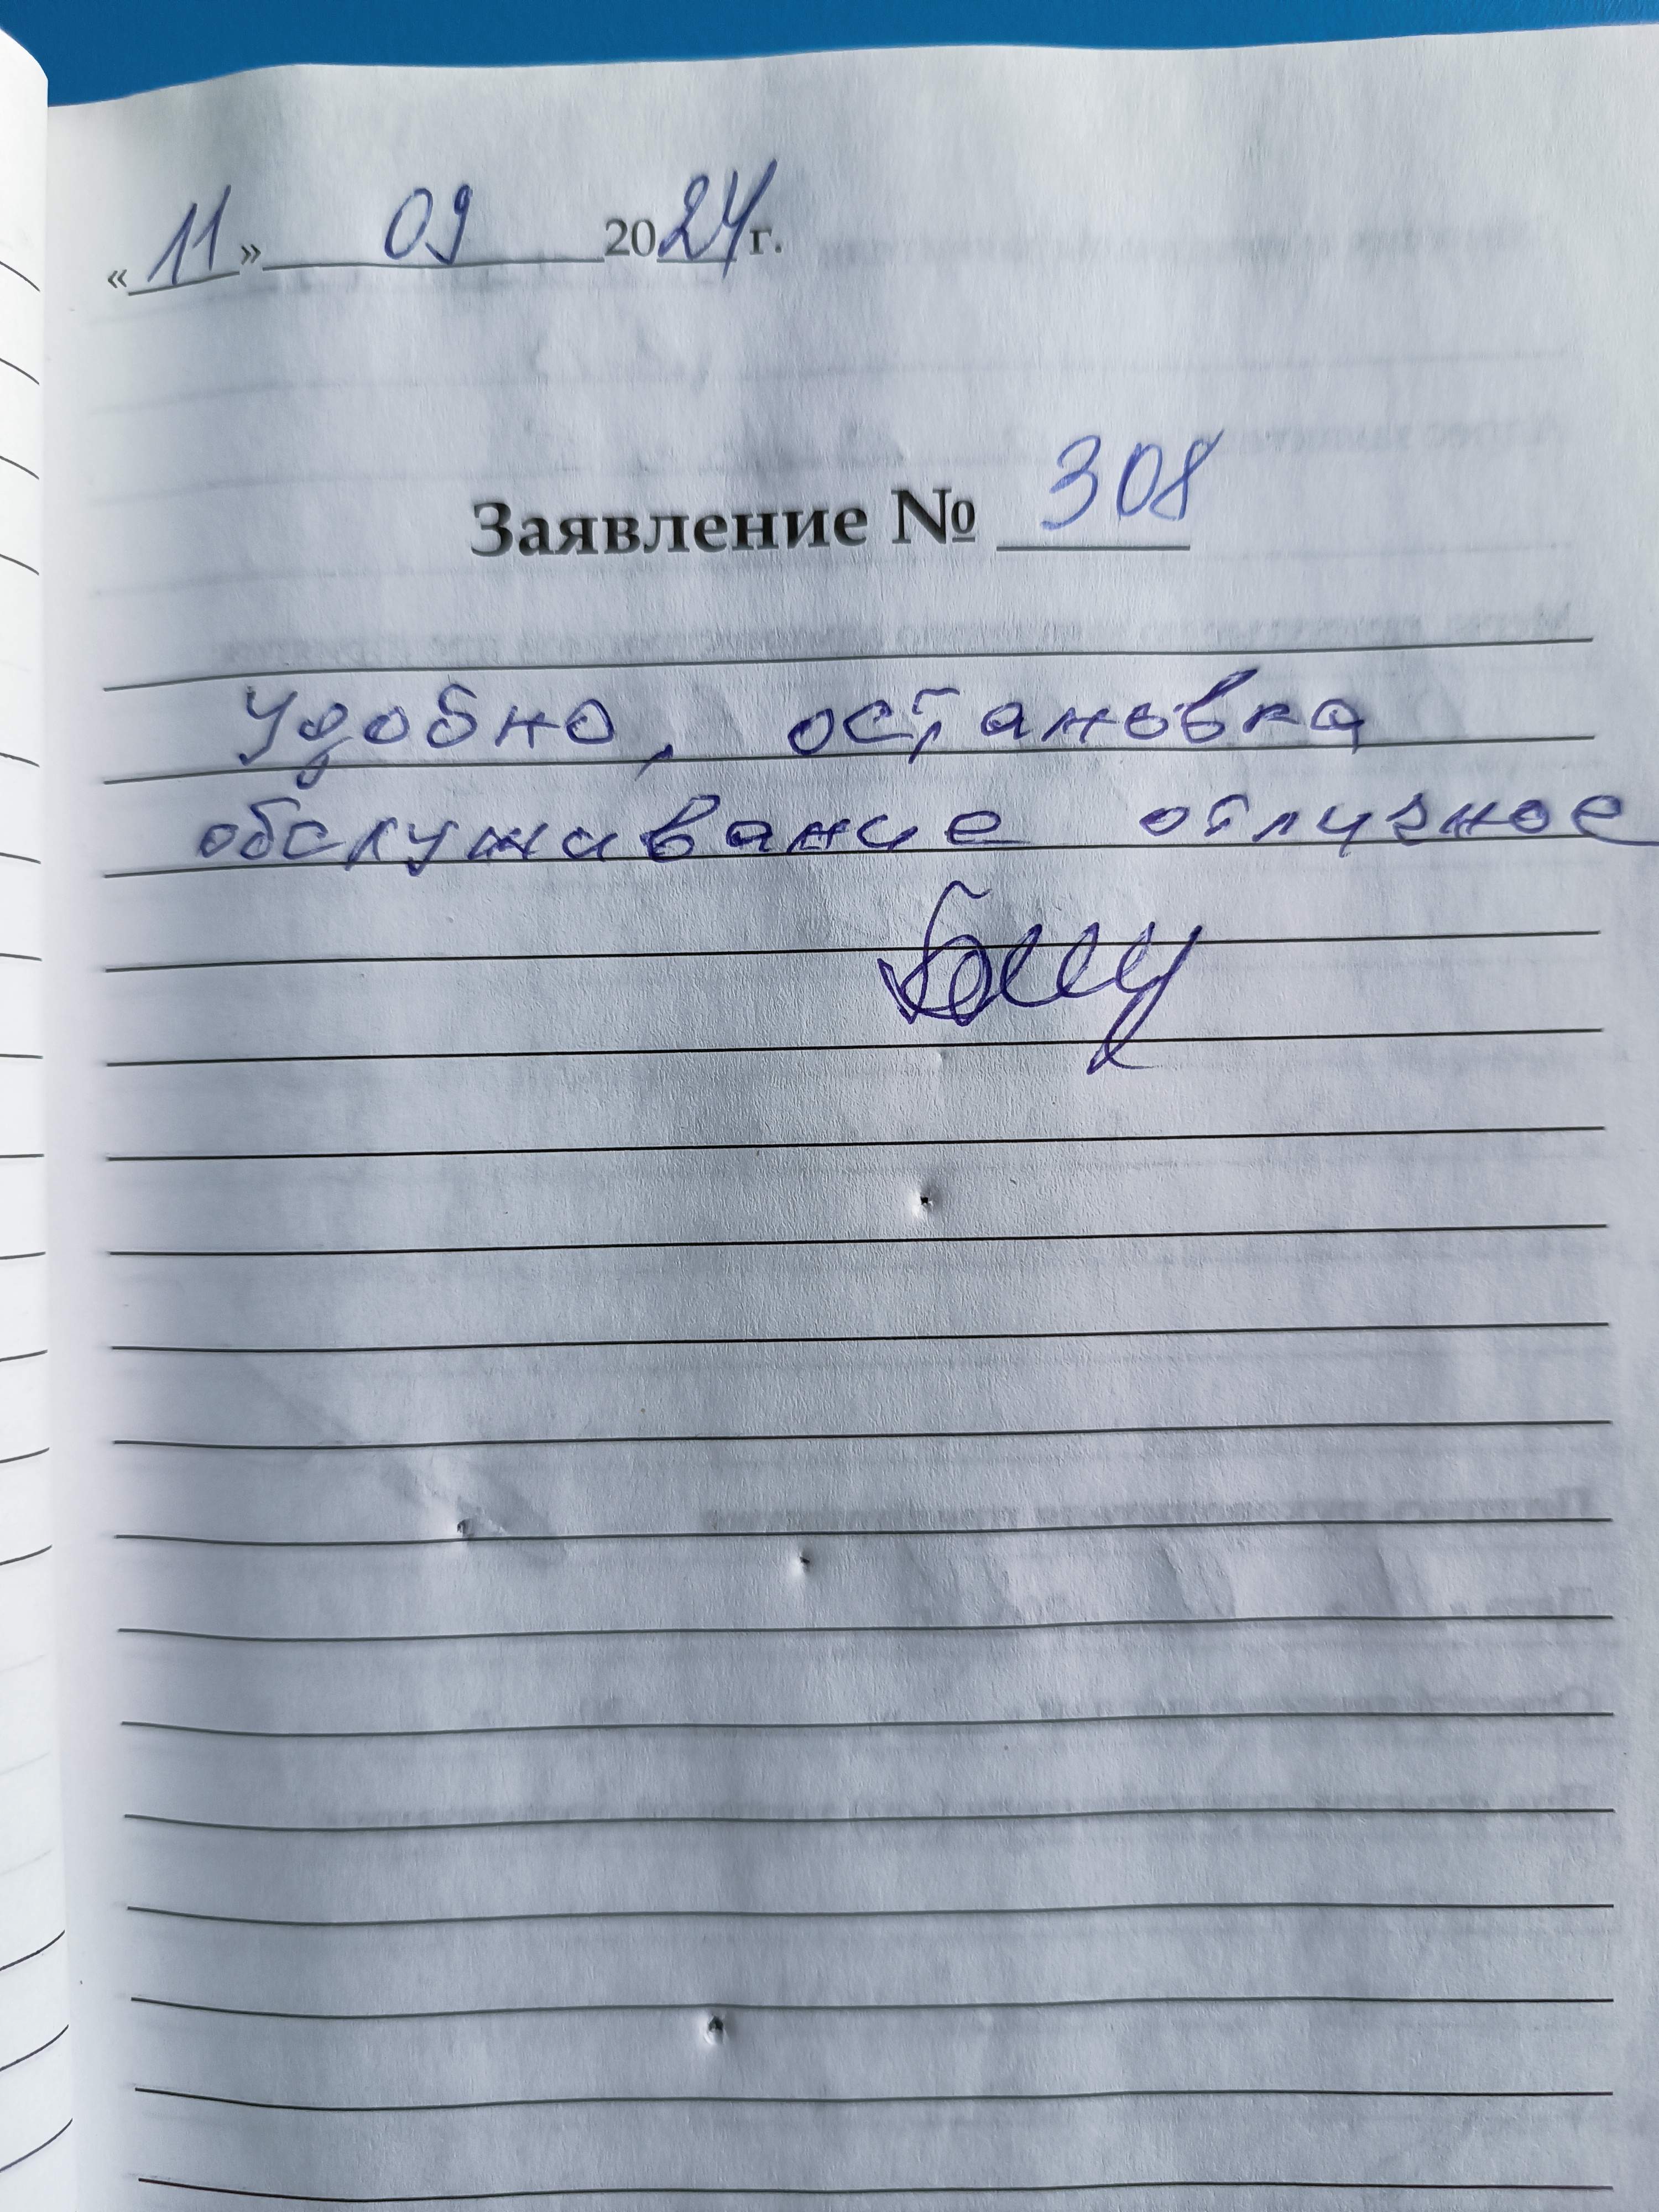 «11» 09 2024г.
Заявление № 308
Удобно, остановка
обслуживание отличное